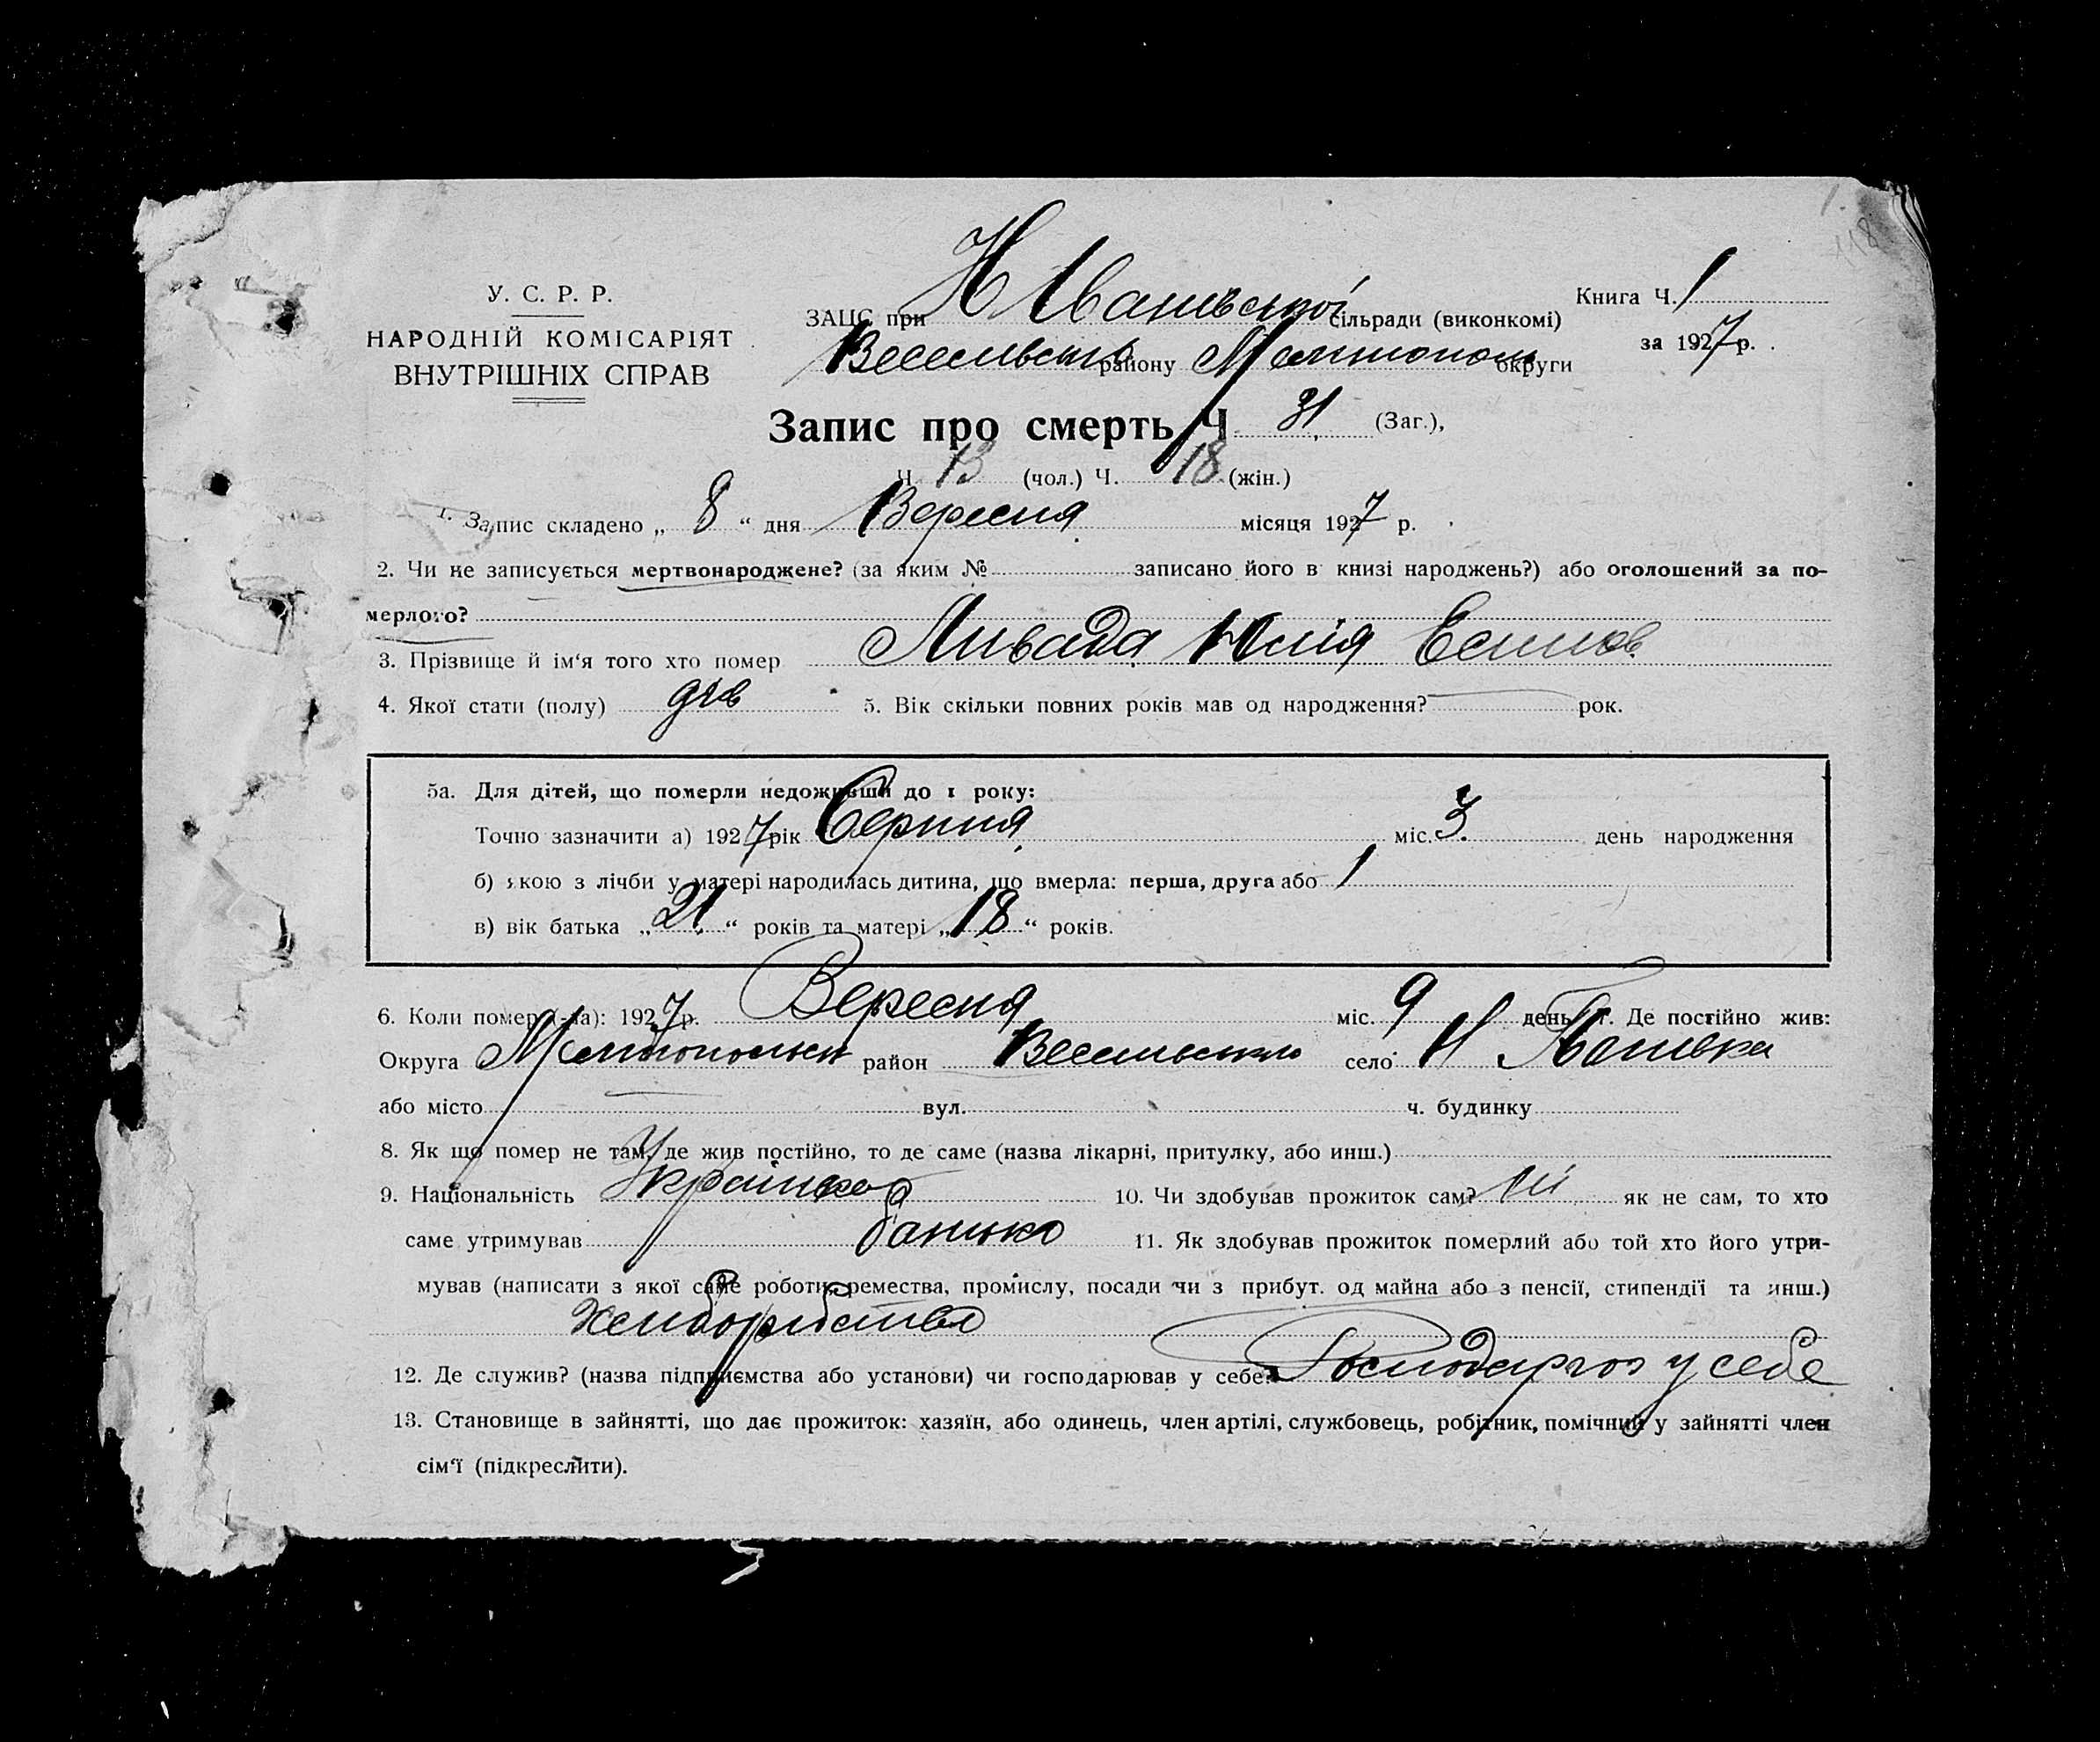 У. С. Р. Р.
НАРОДНІЙ КОМІСАРІЯТ
ВНУТРІШНІХ СПРАВ
ЗАЦС при Н Іванівської сільради (виконкомі)
Веселівськ району Мелітополь округи
Книга Ч. 1
за 1927 р.
Запис про смерть Ч 31 (Заг.),
Ч. 13 (чол.) Ч. 18 (жін.)
1. Запис складено „ 8 “ дня Вересня місяця 1927 р.
2. Чи не записується мертвонароджене? (за яким № записано його в книзі народжень?) або оголошений за по-
мерлого?
3. Прізвище й ім‘я того хто помер Ливада Юлія Есипов
4. Якої стати (полу) дів 5. Вік скільки повних років мав од народження? рок.
5а. Для дітей, що померли недоживши до 1 року:
Точно зазначити а) 1927 рік Серпня міс. 3 день народження
б) якою з лічби у матері народилась дитина, що вмерла: перша, друга або 1
в) вік батька „ 21 “ років та матері „ 18 “ років.
6. Коли помер (-ла): 1927 р. Вересня міс. 9 день 7. Де постійно жив:
Округа район село Н Іванівка
або місто вул. ч. будинку
8. Як що помер не там, де жив постійно, то де саме (назва лікарні, притулку, або инш.)
9. Національність 10. Чи здобував прожиток сам? ні як не сам, то хто
саме утримував батько 11. Як здобував прожиток померлий або той хто його утри-
мував (написати з якої саме роботи, ремества, промислу, посади чи з прибут. од майна або з пенсії, стипендії та инш.)
хліборобство
12. Де служив? (назва підприємства або установи) чи господарював у себе? у себе
13. Становище в зайнятті, що дає прожиток: хазяїн, або одинець, член артілі, службовець, робітник, помічний у зайнятті член
сім‘ї (підкреслити).